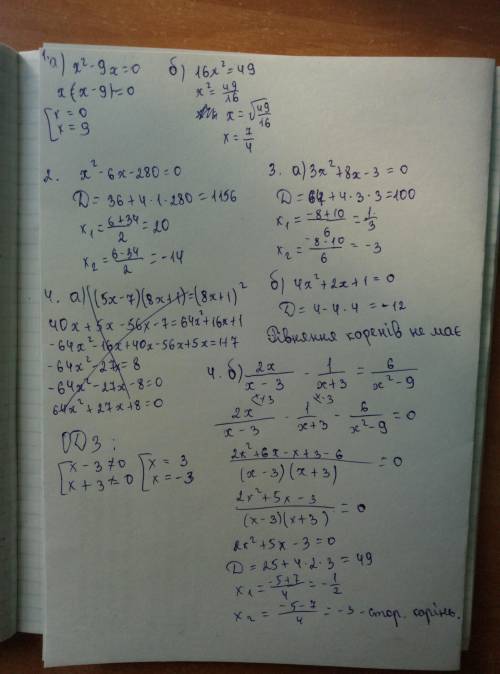 1. а) x² - 9x = 0
x(x - 9) = 0
[ x = 0
x = 9
б) 16x² = 49
x² = 49/16
x = √49/16
x = 7/4
2. x² - 6x - 280 = 0
D = 36 + 4·1·280 = 1156
x₁ = (6+34)/2 = 20
x₂ = (6-34)/2 = -14
3. а) 3x² + 8x - 3 = 0
D = 64 + 4·3·3 = 100
x₁ = (-8+10)/6 = 1/3
x₂ = (-8-10)/6 = -3
б) 4x² + 2x + 1 = 0
D = 4 - 4·4 = -12
Рівняння коренів не має
4. а) (5x-7)(8x+1) = (8x+1)²
40x + 5x - 56x - 7 = 64x² + 16x + 1
-64x² - 16x + 40x - 56x + 5x = 1+7
-64x² - 27x = 8
-64x² - 27x - 8 = 0
64x² + 27x + 8 = 0
ОДЗ:
[ x - 3 ≠ 0
x + 3 ≠ 0
[ x = 3
x = -3
4. б) 2x/(x-3) - 1/(x+3) = 6/(x²-9)
2x/(x-3) - 1/(x+3) - 6/(x²-9) = 0
(2x² + 6x - x + 3 - 6)/((x-3)(x+3)) = 0
(2x² + 5x - 3)/((x-3)(x+3)) = 0
2x² + 5x - 3 = 0
D = 25 + 4·2·3 = 49
x₁ = (-5+7)/4 = -1/2
x₂ = (-5-7)/4 = -3 - стор. корінь.